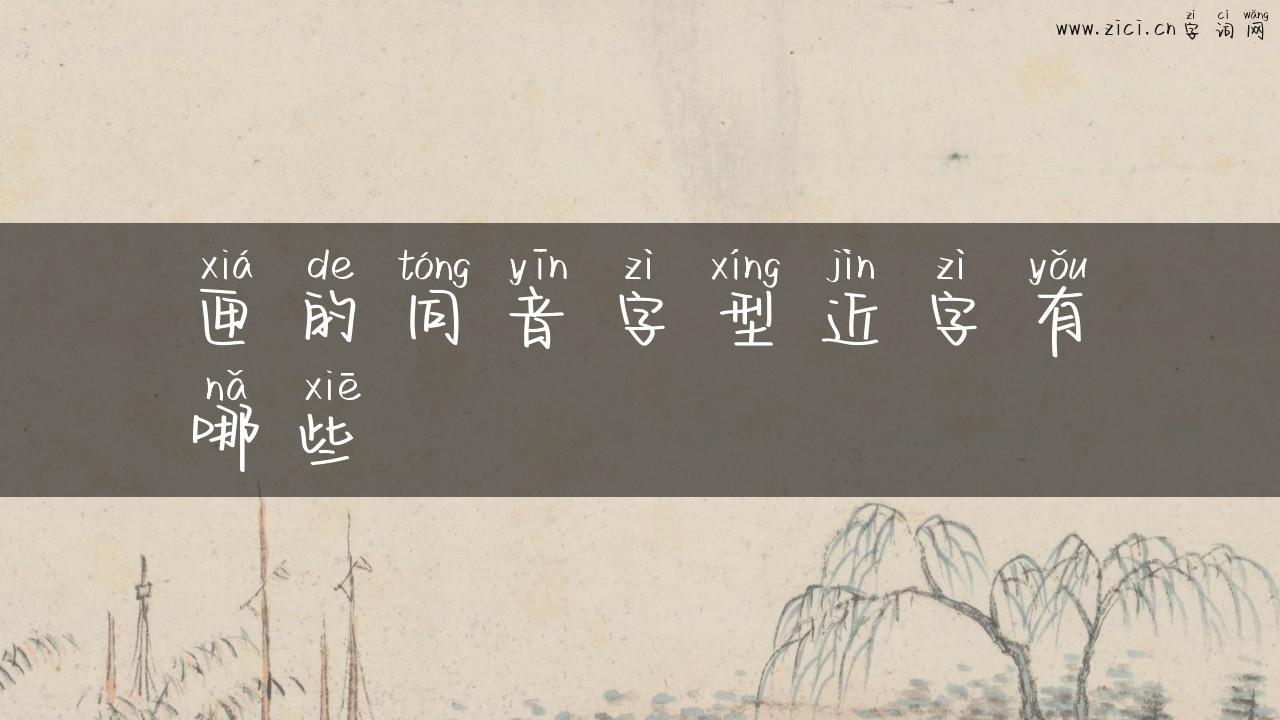 zì cí wǎng
www.zici.cn 字 词 网
xiá de tóng yīn zì xíng jìn zì yǒu
匣 的 同 音 字 型 近 字 有
nǎ xiē
哪 些